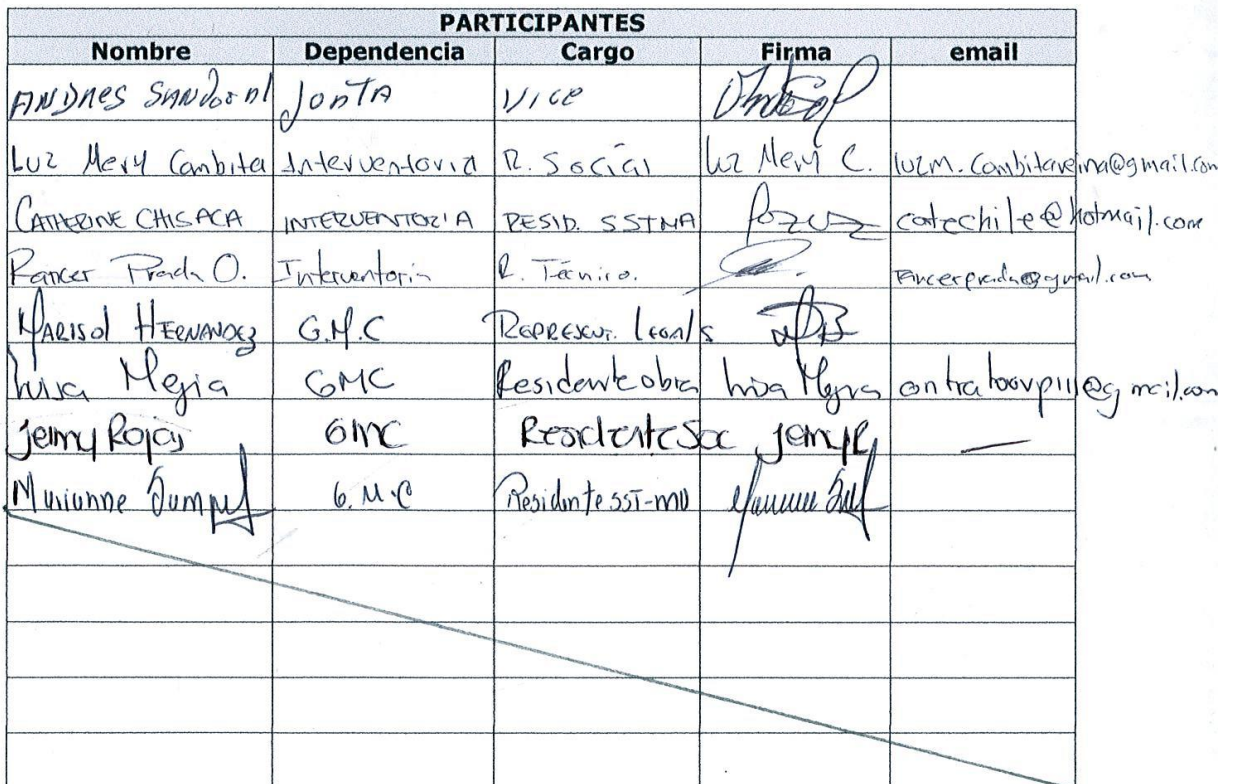 PARTICIPANTES
Nombre Dependencia Cargo Firma email
ANDRES SANDOVAL JONTA VICE
Luz Mery Cambita Interventoria R. Social Luz Mery C. luzm.cambitareina@gmail.com
CATHERINE CHISACA INTERVENTORIA RESID. SSTMA catechile@hotmail.com
Rancer Prada O. Interventoria R. Técnico. rancerprada@gmail.com
MARISOL HERNANDEZ G.M.C
Luisa Mejia GMC Residente obra Luisa Mejia
Jeimy Rojas GMC Residente Soc Jeimy R.
Marianne G.M.C Residente SST-MA